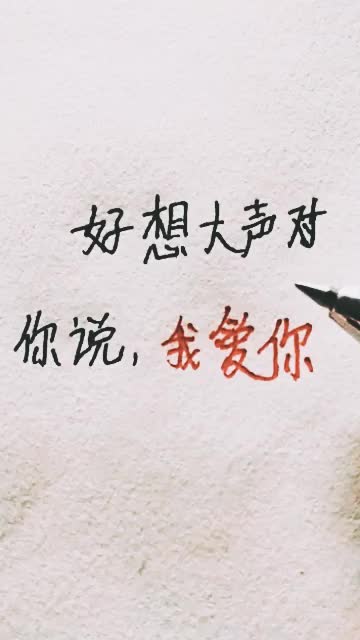 好想大声对
你说,我爱你